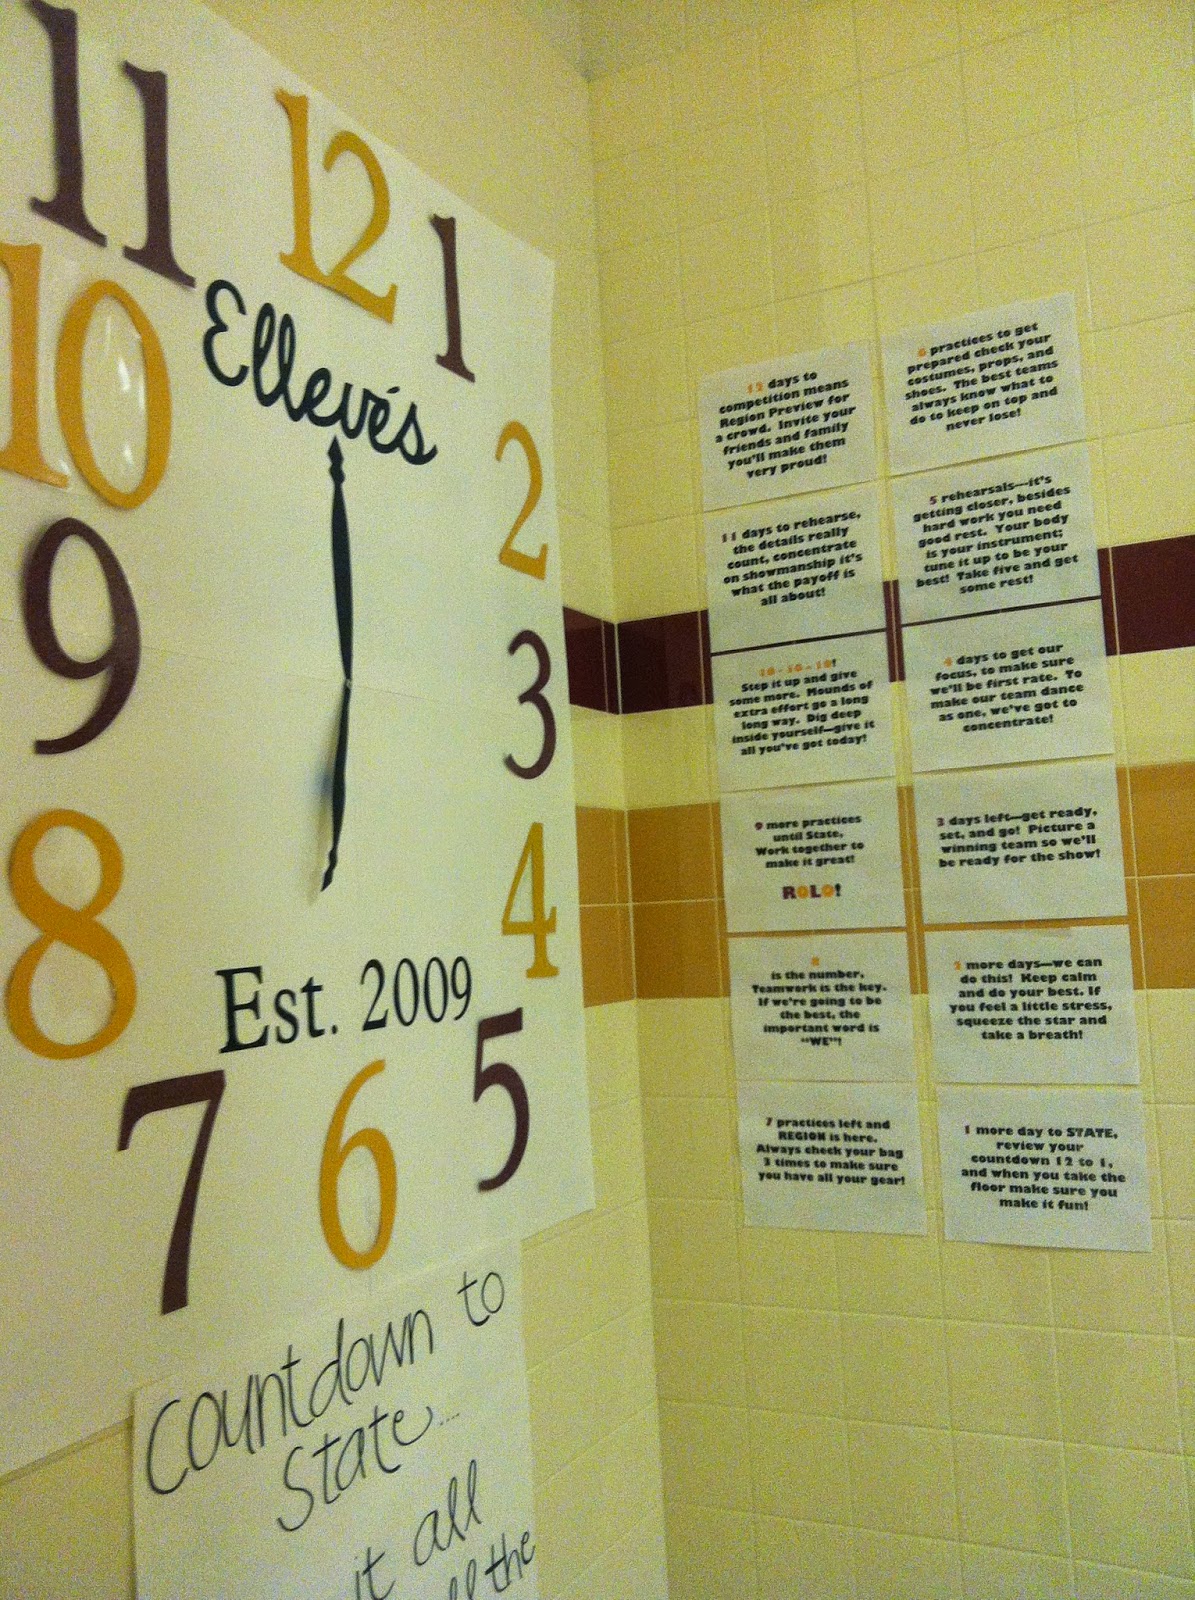 11
12
1
10
Ellevés
2
9
3
8
4
Est. 2009
5
7
6
Countdown to
State...
it all
the
12 days to
competition means
Region Preview for
a crowd. Invite your
friends and family
you'll make them
very proud!
11 days to rehearse,
the details really
count, concentrate
on showmanship it's
what the payoff is
all about!
10 - 10 - 10!
Step it up and give
some more. Mounds of
extra effort go a long
long way. Dig deep
inside yourself—give it
all you've got today!
9 more practices
until State,
Work together to
make it great!
ROLO!
8
is the number,
Teamwork is the key.
If we're going to be
the best, the
important word is
"WE"!
7 practices left and
REGION is here.
Always check your bag
3 times to make sure
you have all your gear!
6 practices to get
prepared check your
costumes, props, and
shoes. The best teams
always know what to
do to keep on top and
never lose!
5 rehearsals—it's
getting closer, besides
hard work you need
good rest. Your body
is your instrument;
tune it up to be your
best! Take five and get
some rest!
4 days to get our
focus, to make sure
we'll be first rate. To
make our team dance
as one, we've got to
concentrate!
3 days left—get ready,
set, and go! Picture a
winning team so we'll
be ready for the show!
2 more days—we can
do this! Keep calm
and do your best. If
you feel a little stress,
squeeze the star and
take a breath!
1 more day to STATE,
review your
countdown 12 to 1,
and when you take the
floor make sure you
make it fun!